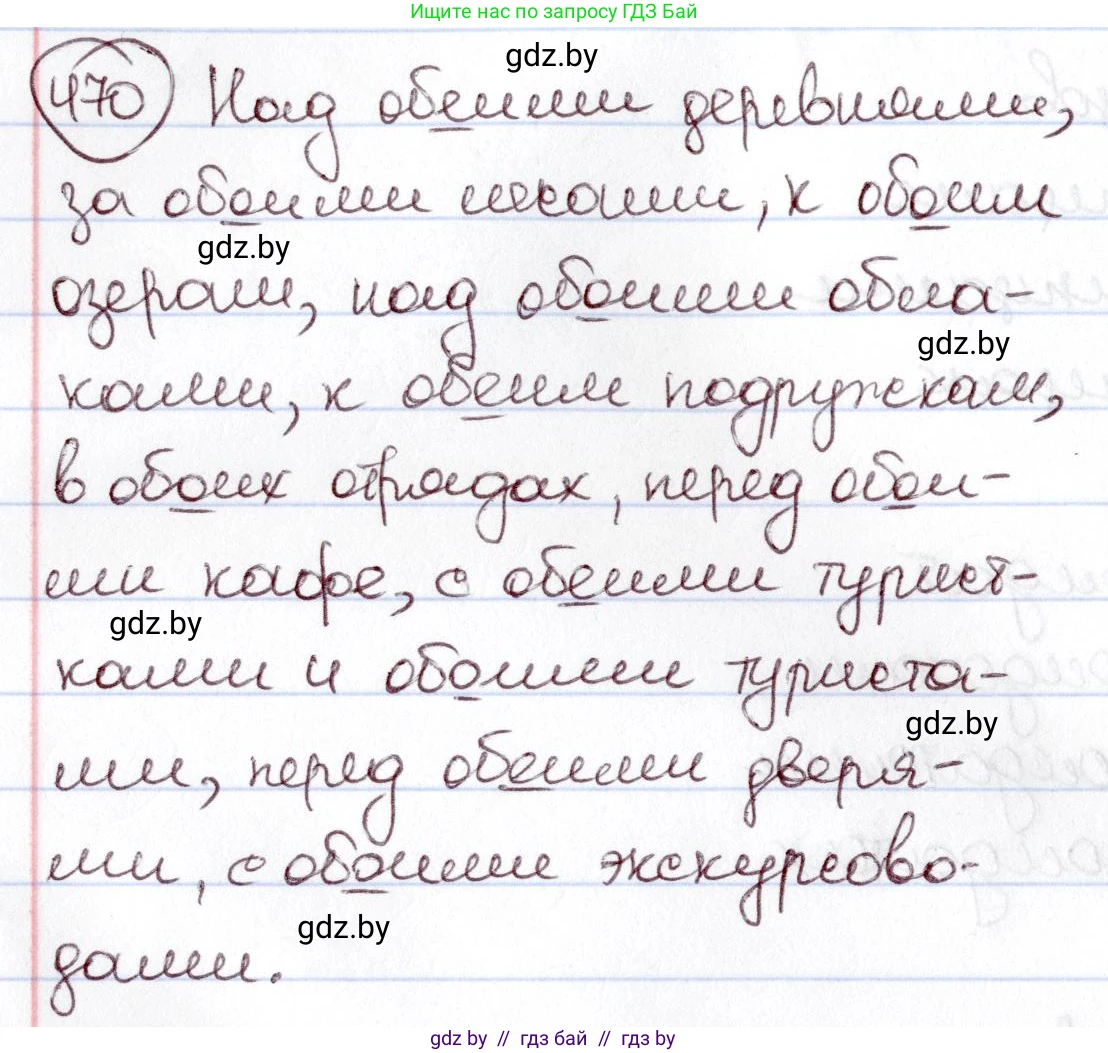 Ищите нас по запросу ГДЗ Бай
gdz.by
470 Над обеими деревнями,
за обоими шкафами, к обоим
gdz.by
озерам, над обоими обла-
gdz.by
ками, к обеим подружкам,
в обоих отрядах, перед обои-
ми кафе, с обеими турист-
gdz.by
ками и обоими туриста-
gdz.by
ми, перед обеими дверя-
ми, с обоими экскурсово-
gdz.by
дами.
gdz.by // гдз бай // гдз by